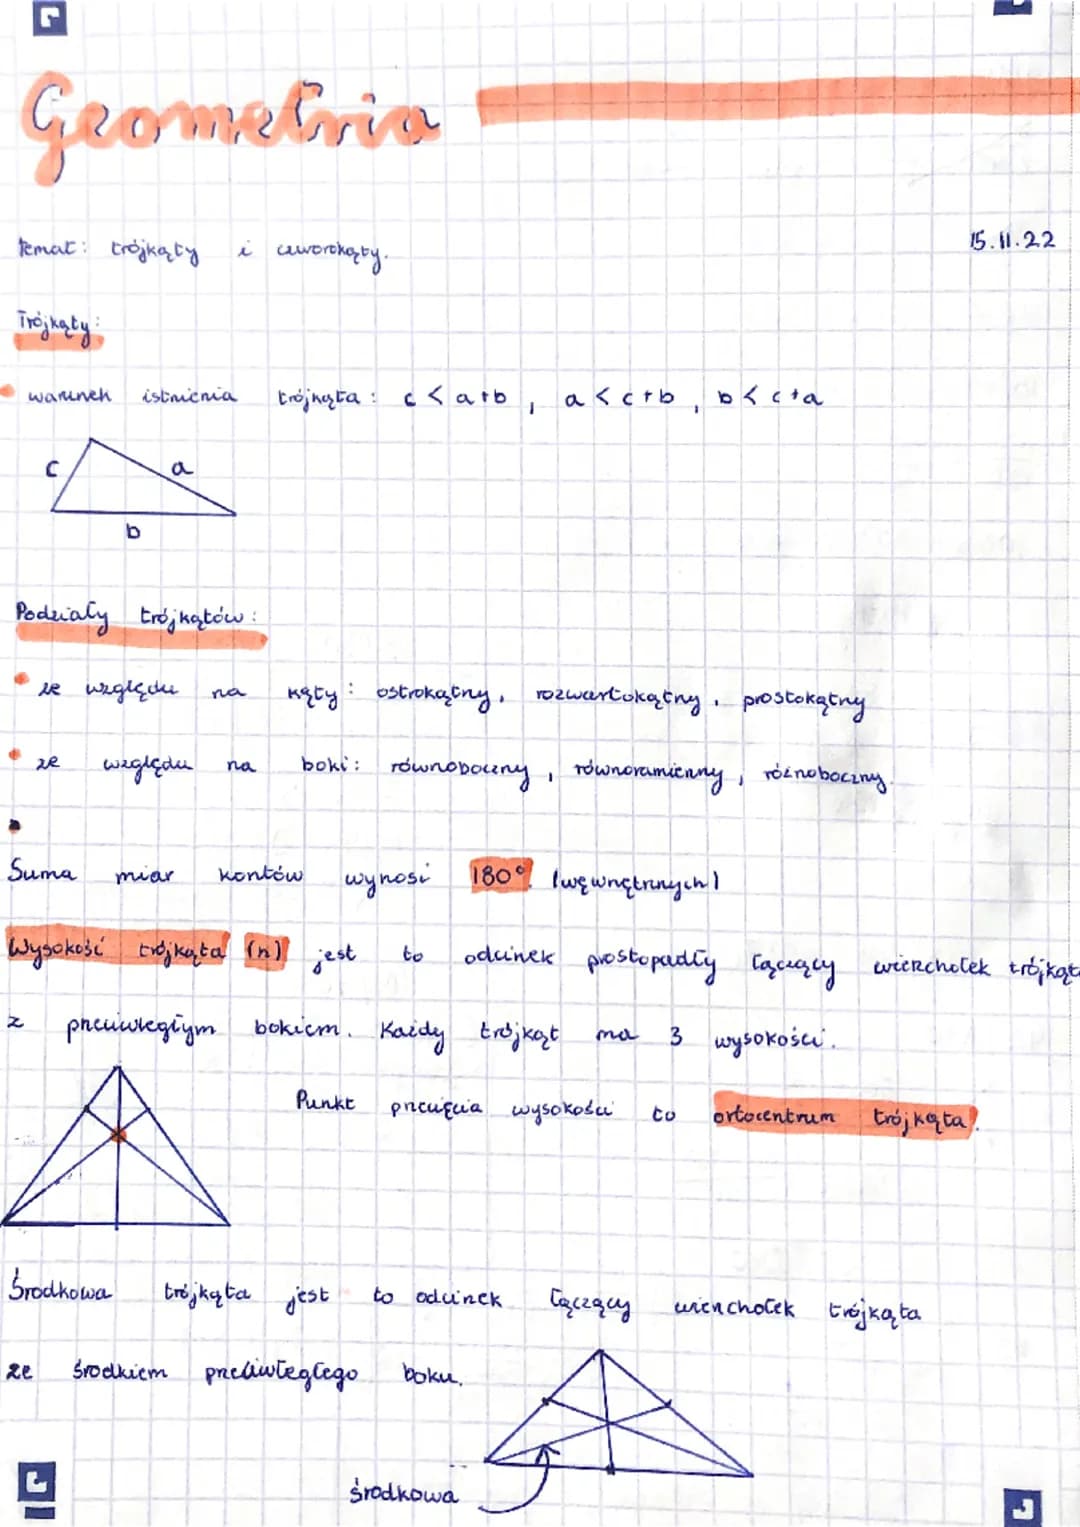 Geometria
temat: trójkąty i czworokąty.
15.11.22
Trójkąty:
• warunek istnienia trójkąta: c < a+b, a < c+b, b < c+a
c
a
b
Podziały trójkątów:
• ze względu na kąty: ostrokątny, rozwartokątny, prostokątny
• ze względu na boki: równoboczny, równoramienny, różnoboczny.
Suma miar kontów wynosi 180°. (węwnętrznych)
Wysokość trójkąta (h) jest to odcinek prostopadły łączący wierzchołek trójkąta
z przeciwległym bokiem. Każdy trójkąt ma 3 wysokości.
Punkt przecięcia wysokości to ortocentrum trójkąta.
Środkowa trójkąta jest to odcinek łączący wierzchołek trójkąta
ze środkiem przeciwległego boku.
środkowa